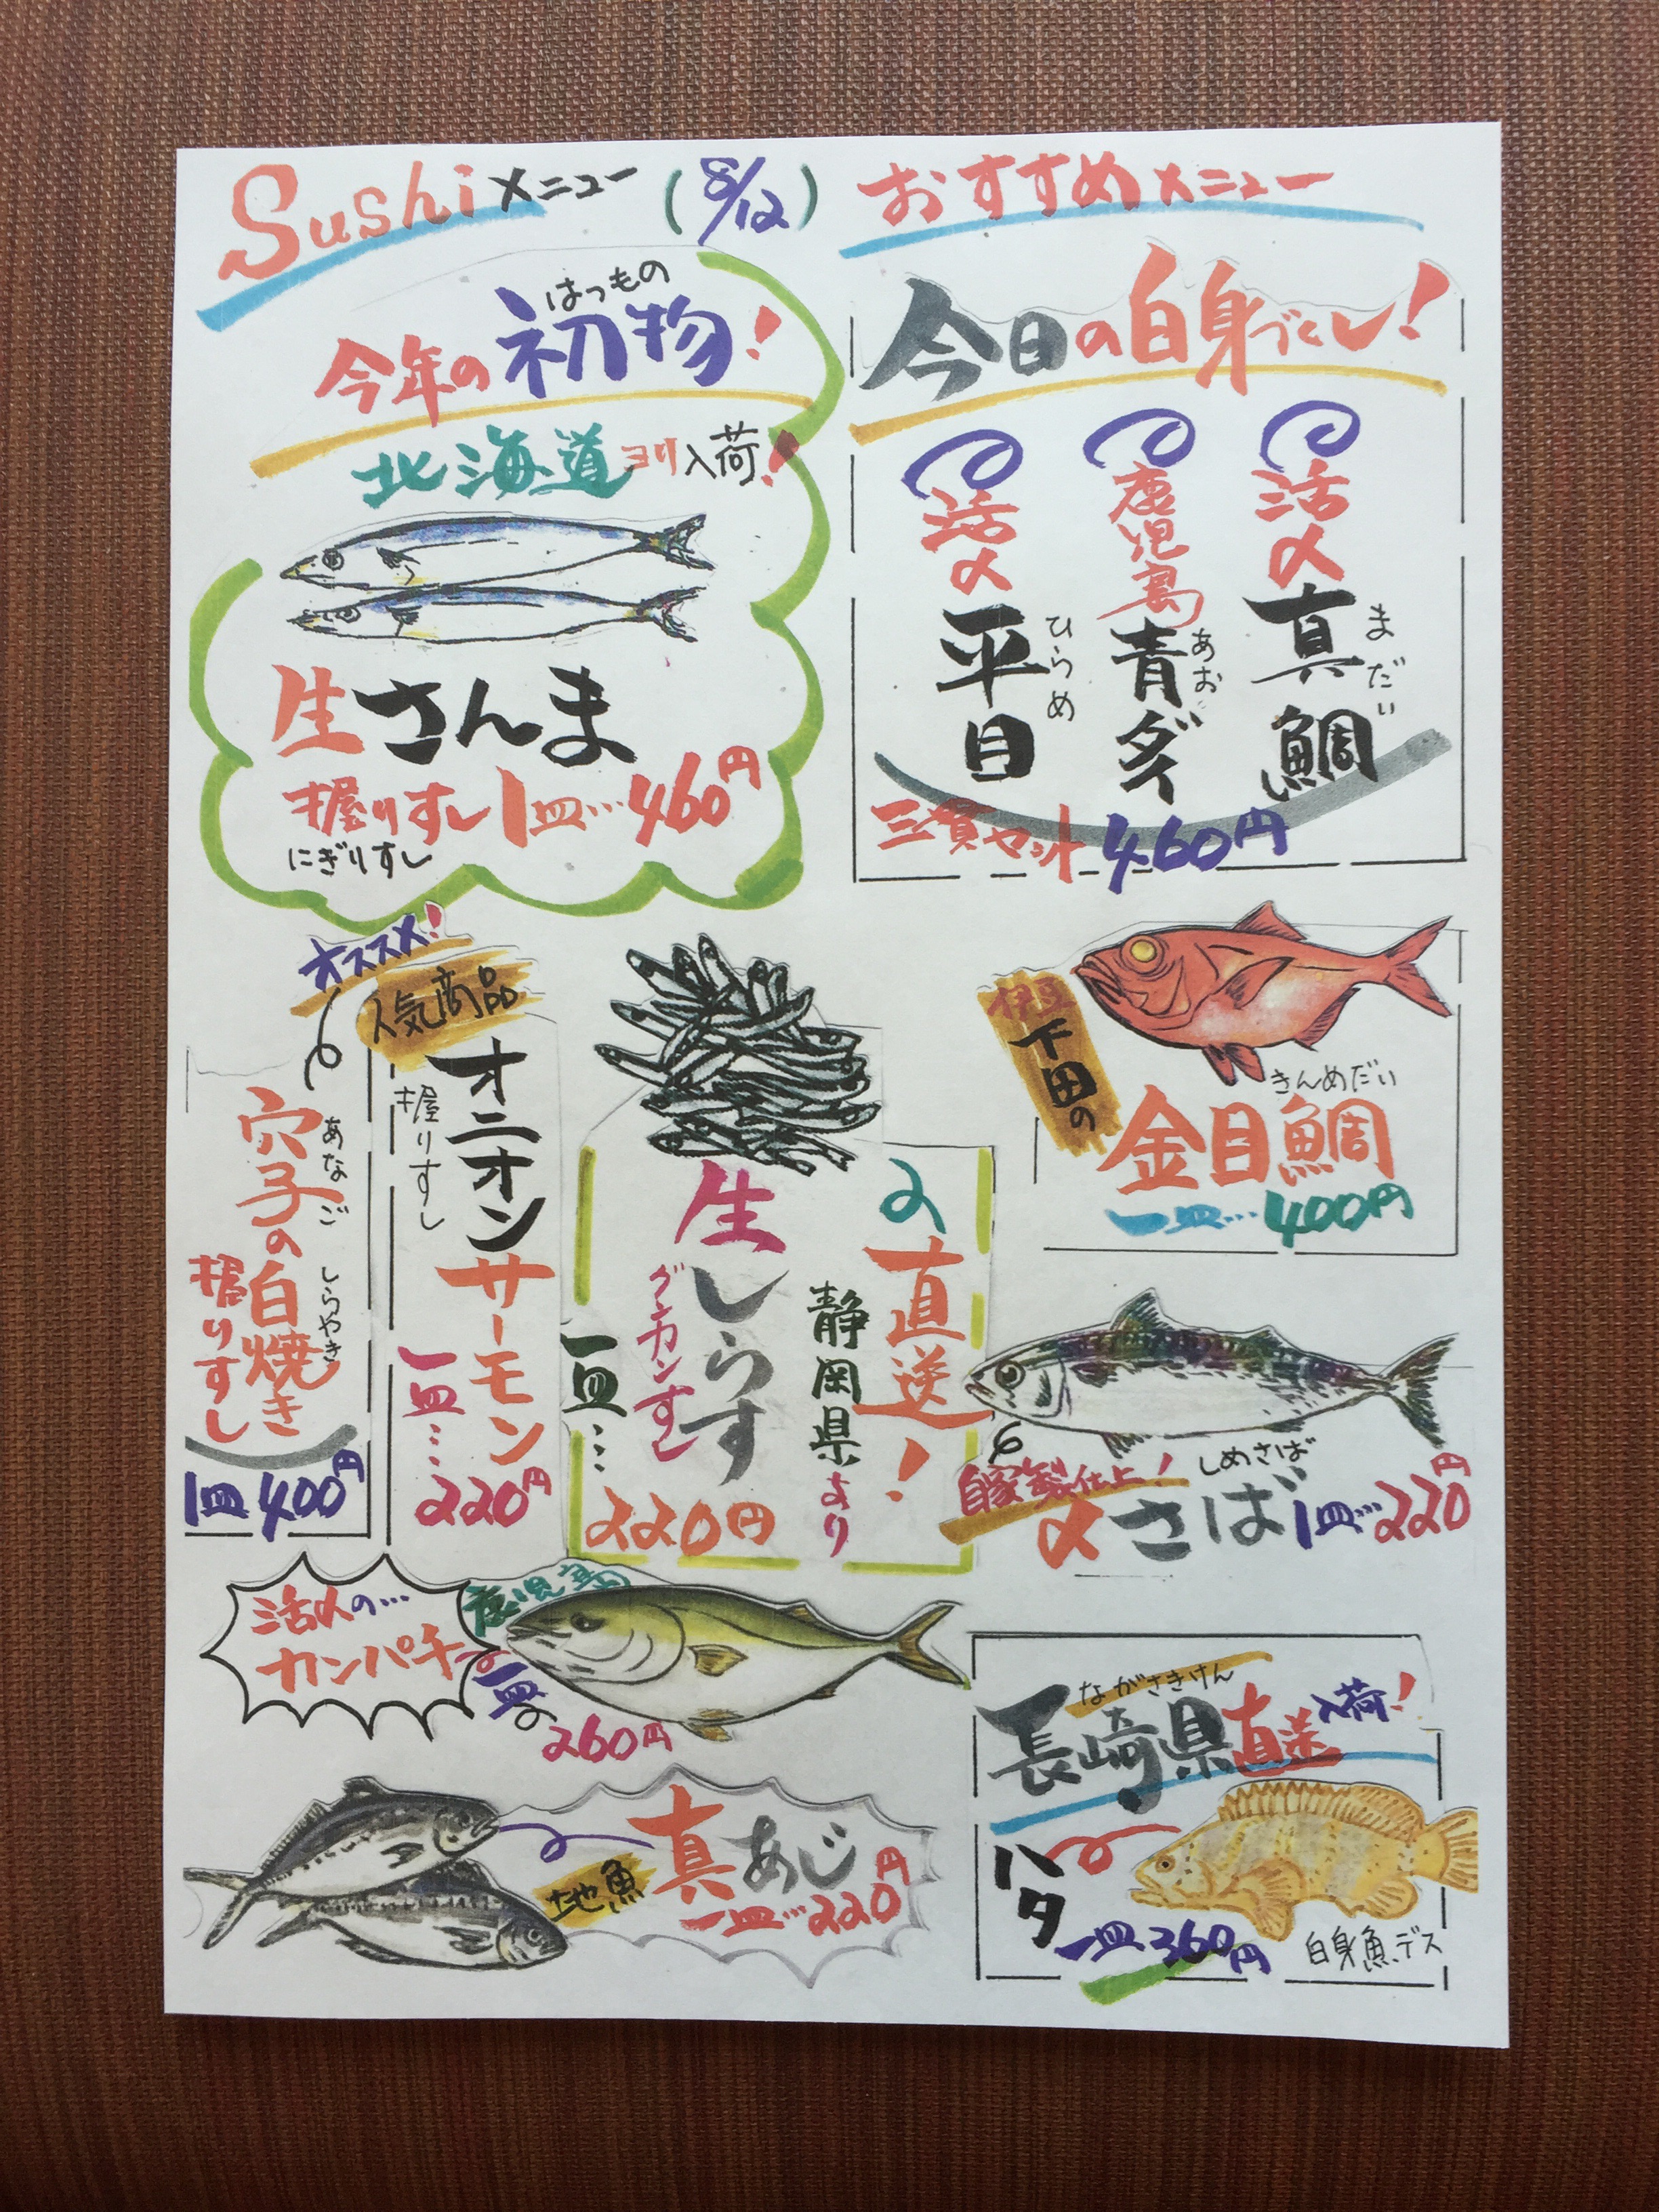 Sushiメニュー (8/12) おすすめメニュー
はつもの
今年の初物!
北海道ヨリ入荷!
生さんま
握りすし1皿…460円
にぎりすし
今日の白身づくし!
活〆真鯛
まだい
鹿児島青ダイ
あお
活〆平目
ひらめ
三貫セット460円
オススメ!
穴子の白焼き
あなご しらやき
握りすし
1皿400円
人気商品
オニオンサーモン
握りすし
一皿…220円
〆直送!
静岡県より
生しらす
グンカンすし
一皿…
220円
伊豆
下田の
きんめだい
金目鯛
一皿…400円
自家製仕上!
しめさば
〆さば1皿…220円
活〆の…
カンパチ
鹿児島
1皿
260円
地魚
真あじ
一皿…220円
ながさきけん
長崎県直送入荷!
ハタ
一皿360円
白身魚デス